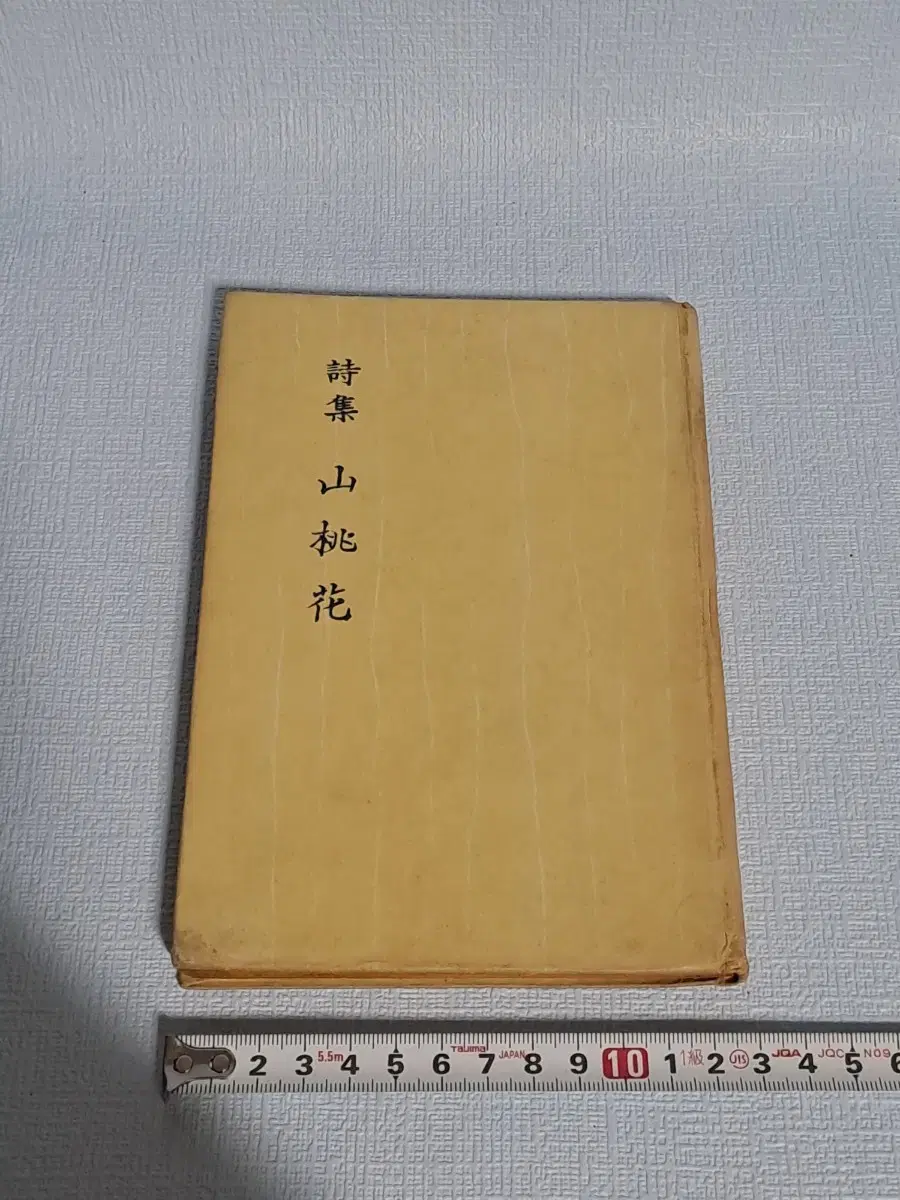 詩集 山桃花
2 3 5.5m 4 5 6 Tajima 7 JAPAN 8 9 10 1 1級 2 JIS 3 JQA 4 JQC 5 N09 6